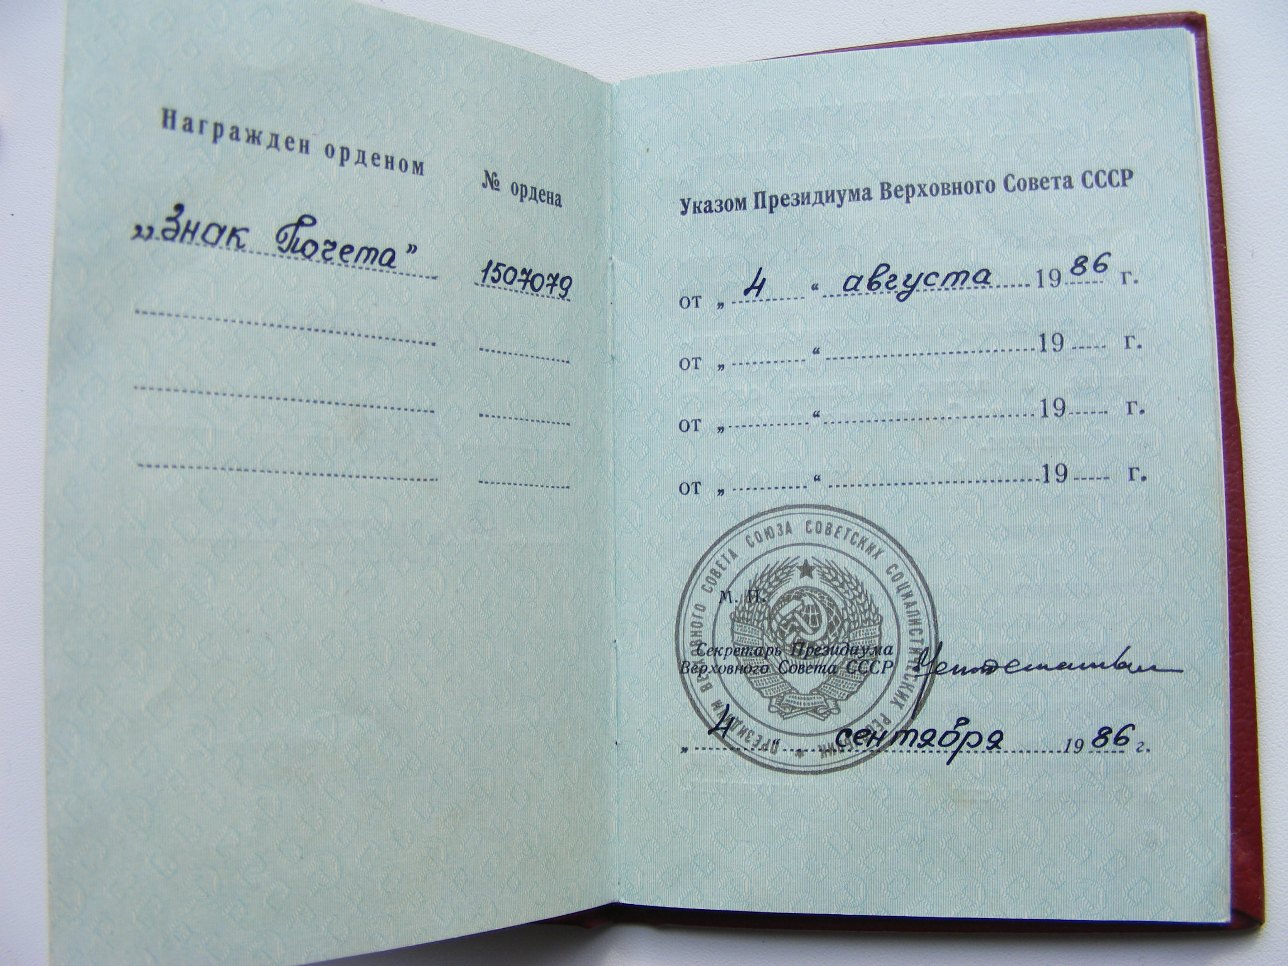 Награжден орденом
№ ордена
„Знак Почета” 1507079
Указом Президиума Верховного Совета СССР
от „ 4 “ августа 1986 г.
от „ “ 19 г.
от „ “ 19 г.
от „ “ 19 г.
ПРЕЗИДИУМ ВЕРХОВНОГО СОВЕТА СОЮЗА СОВЕТСКИХ СОЦИАЛИСТИЧЕСКИХ РЕСПУБЛИК
М. П.
Секретарь Президиума
Верховного Совета СССР
„ 4 сентября 1986 г.